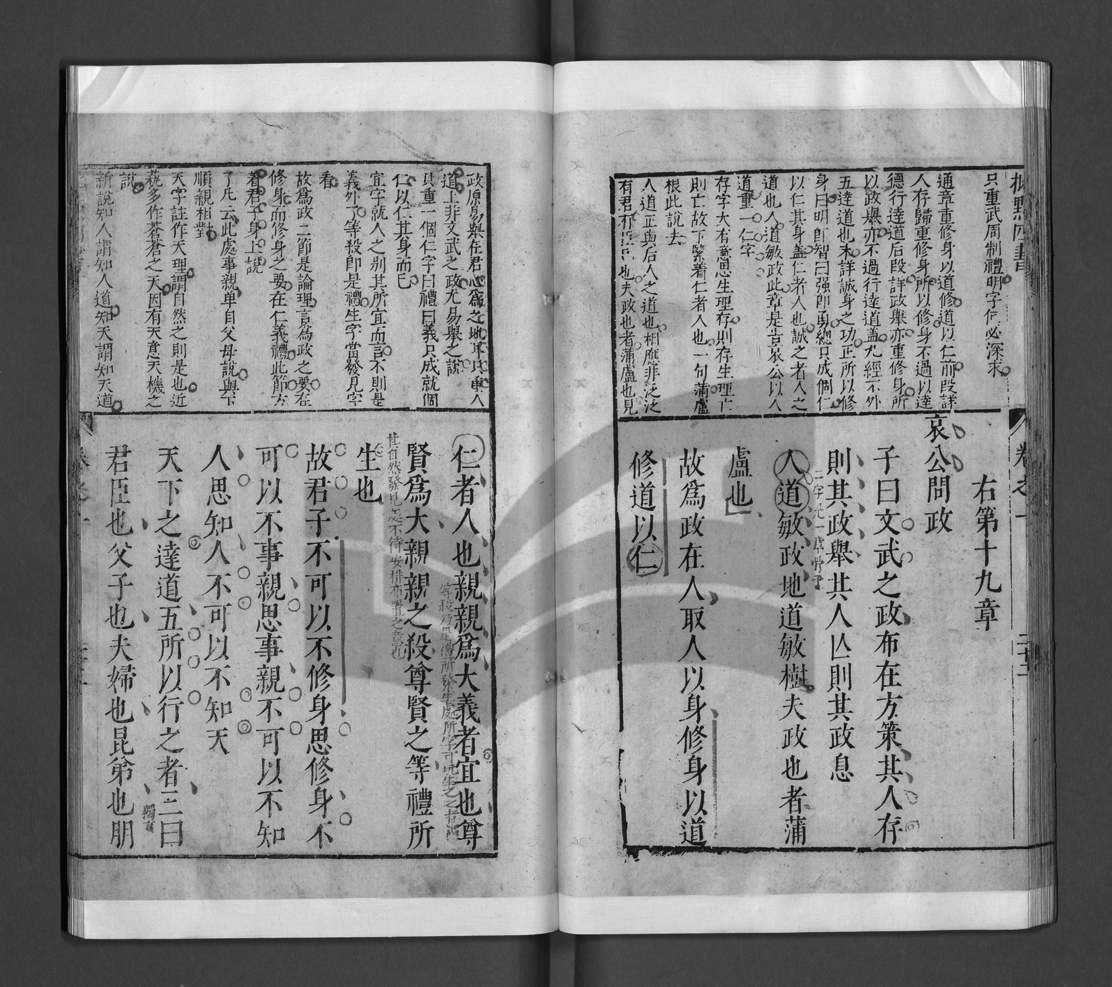 只重武周制禮明字何必深求
通章重修身以道修道以仁前段詳
人存歸重修身所以修身不過以達
德行達道后段詳政舉亦重修身所
以政舉亦不過行達道蓋九經不外
五達道也末詳誠身之功正所以修
身曰明即智曰强即勇總只成個仁
以仁其身蓋仁者人也誠之者人之
道也人道敏政此章是告哀公以人
道重一仁字
存字大有意思生理存則存生理亡
則亡故下緊着仁者人也一句蒲盧
根此說去
人道正與后人之道也相應非泛泛
有君有臣也夫政也者蒲盧也見
右第十九章
哀公問政
子曰文武之政布在方策其人存
則其政舉其人亾則其政息
二字元一章骨子
人道敏政地道敏樹夫政也者蒲
盧也
故爲政在人取人以身修身以道
修道以仁
政原易舉在君心為之地耳具重人
道上非文武之政尤易舉之說
只重一個仁字曰禮曰義只成就個
仁以仁其身而已
宜字就人之别其所宜而言不則是
義外了等殺即是禮生字當發見字
看
故爲政二節是論理言為政之要在
修身而修身之要在仁義禮此節方
着君子身上說
了凡云此處事親單自父母說與下
順親相對
天字註作天理謂自然之則是也近
說多作蒼蒼之天因有天意天機之
說
新說知人謂知人道知天謂知天道
仁者人也親親爲大義者宜也尊
賢爲大親親之殺尊賢之等禮所
其自然發見處不待安排布置之意范
生也
故君子不可以不修身思修身不
可以不事親思事親不可以不知
人思知人不可以不知天
天下之達道五所以行之者三曰
君臣也父子也夫婦也昆弟也朋